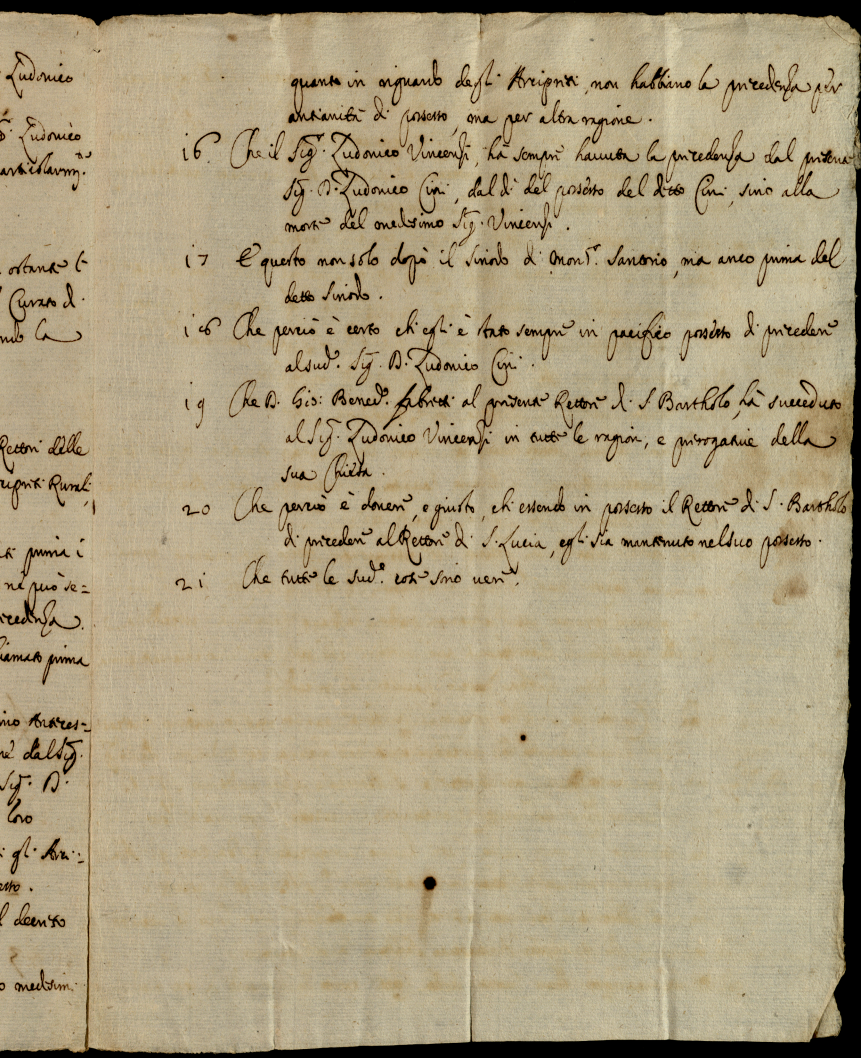 Ludovico
D. Ludovico
particolarmte.
ostante
Curato di
la
Rettori delle
cipreti Rurali
prima
né può se=
cedenza.
iamato prima
Interes=
dal Sig.
Sig. D.
loro
gl' Arci=
decreto
medesim
quanto in riguardo degli Arcipreti, non habbino la precedenza per
antianità di possesso, ma per altra ragione.
16. Che il Sigr. Ludovico Vincenzi, hà sempre havuta la precedenza dal presente
Sig. D. Ludovico Cini, dal dì del possesso del detto Cini, sino alla
morte del medesimo Sig. Vincenzi.
17 E questo non solo dopò il Sinodo di Monsr. Santorio, ma anco prima del
detto Sinodo.
18 Che perciò è certo che egli è stato sempre in pacifico possesso di precedere
al sudo. Sig. D. Ludovico Cini.
19 Che D. Gio: Bened. Fabretti al presente Rettore di S. Bartholo, hà succeduto
al Sig. Ludovico Vincenzi in tutte le ragioni, e prerogative della
sua Chiesa.
20 Che perciò è dovere, e giusto, che essendo in possesso il Rettore di S. Bartholo
di precedere al Rettore di S. Lucia, egli sia mantenuto nel suo possesso.
21 Che tutte le sude. cose sono vere.